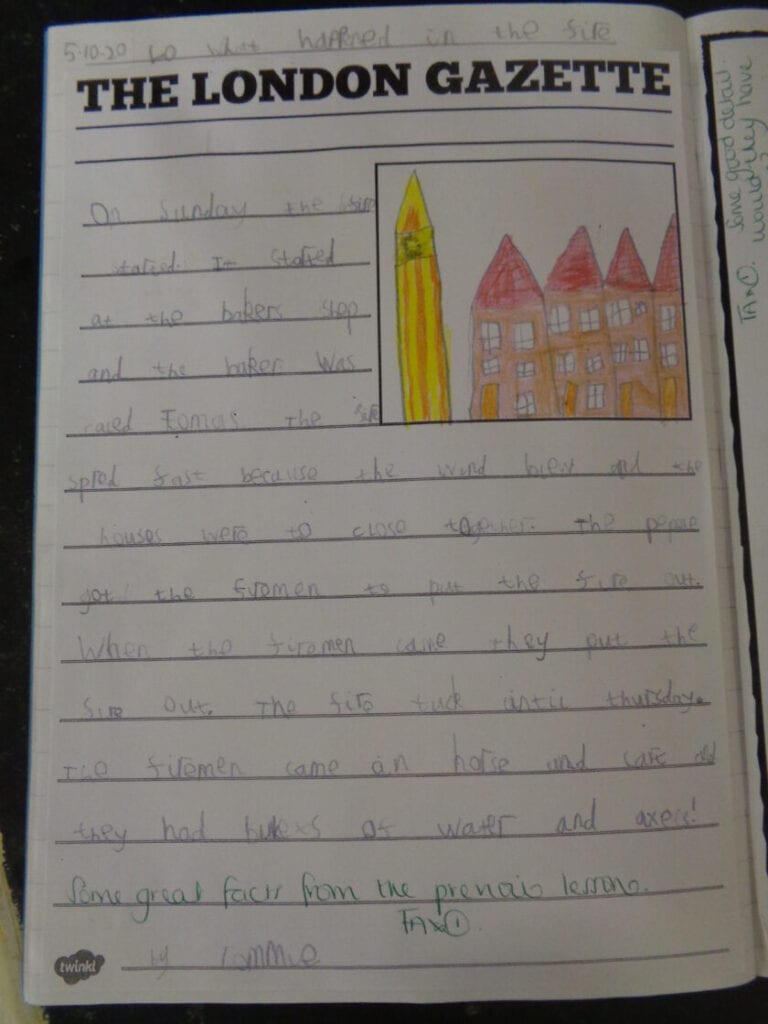 5.10.20 Lo what happened in the fire
THE LONDON GAZETTE
On Sunday the
started. It started
at the bakers shop
and the baker was
caled Tomas The fire
spred fast because the wind blew and the
houses were to close together. The
got the firemen to put the fire out.
When the firemen came they put the
fire out. The fire tuck until thursday.
The firemen came on horse and cart and
they had bukets of water and axers!
Some great facts from the previous lessons.
TAx1
by Tommie
twinkl
Some good detail.
would they have
TAx1.